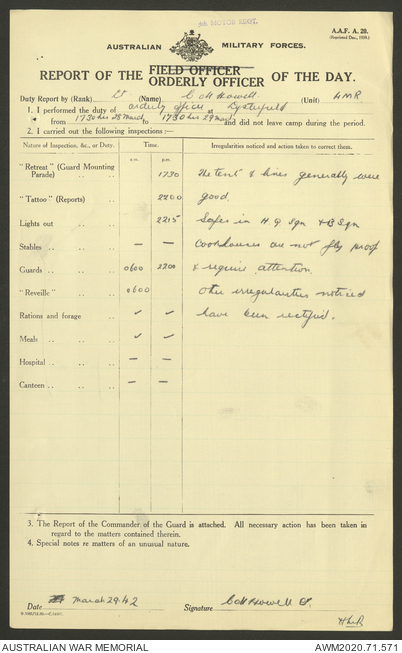 4th MOTOR REGT.
A.A.F. A. 20.
(Reprinted Dec., 1939.)
AUSTRALIAN MILITARY FORCES.
REPORT OF THE FIELD OFFICER ORDERLY OFFICER OF THE DAY.
Duty Report by (Rank) Lt (Name) C H Howell (Unit) 4MR
1. I performed the duty of orderly officer at
from 1730 hrs 28 March to 1730 hrs 29 March and did not leave camp during the period.
2. I carried out the following inspections:—
Nature of Inspection, &c., or Duty. Time. Irregularities noticed and action taken to correct them.
a.m. p.m.
"Retreat" (Guard Mounting
Parade) .. .. 1730 The tent & lines generally were
"Tattoo" (Reports) .. 2200 good.
Lights out .. .. 2215 in H Q Sqn & B Sqn
Stables .. .. — — Cookhouses are not fly proof
Guards .. .. 0600 2200 & require attention.
"Reveille" .. .. 0600 Other irregularities noticed
Rations and forage .. ✓ ✓ have been rectified.
Meals .. .. ✓ ✓
Hospital .. .. — —
Canteen .. .. — —
3. The Report of the Commander of the Guard is attached. All necessary action has been taken in
regard to the matters contained therein.
4. Special notes re matters of an unusual nature.
Date March 29.42 Signature C H Howell Lt.
AUSTRALIAN WAR MEMORIAL AWM2020.71.571